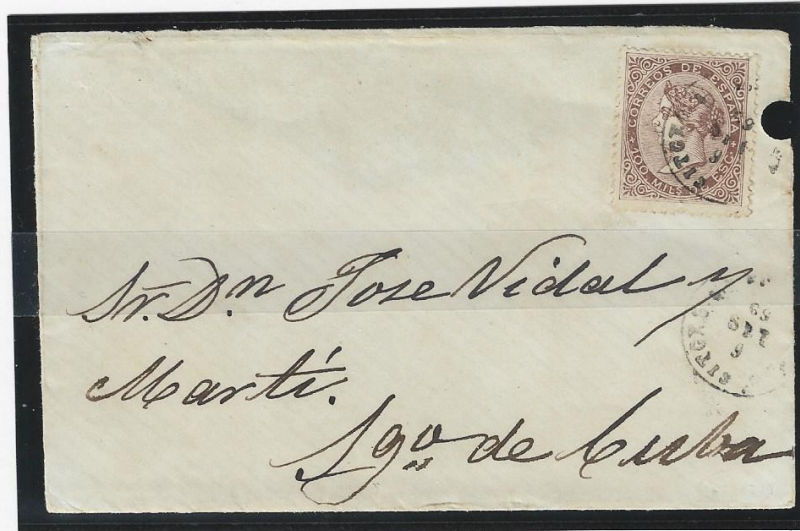 CORREOS DE ESPAÑA
100 MILS ESC.
Sr. Dn Jose Vidal y
Martí.
Sgo. de Cuba